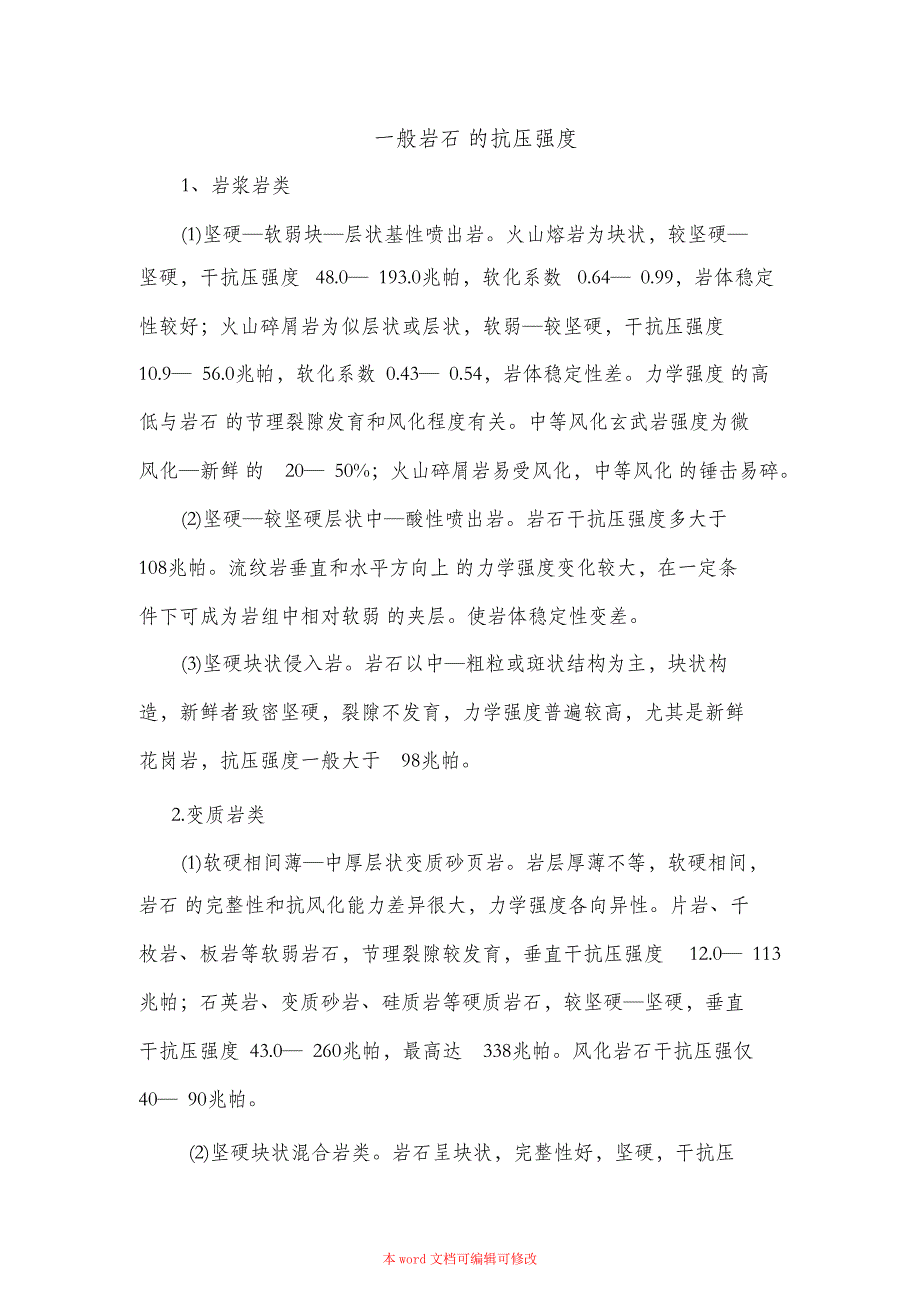 一般岩石 的抗压强度
1、岩浆岩类
⑴坚硬—软弱块—层状基性喷出岩。火山熔岩为块状，较坚硬—
坚硬，干抗压强度 48.0— 193.0兆帕，软化系数 0.64— 0.99，岩体稳定
性较好；火山碎屑岩为似层状或层状，软弱—较坚硬，干抗压强度
10.9— 56.0兆帕，软化系数 0.43— 0.54，岩体稳定性差。力学强度 的高
低与岩石 的节理裂隙发育和风化程度有关。中等风化玄武岩强度为微
风化—新鲜 的 20— 50%；火山碎屑岩易受风化，中等风化 的锤击易碎。
⑵坚硬—较坚硬层状中—酸性喷出岩。岩石干抗压强度多大于
108兆帕。流纹岩垂直和水平方向上 的力学强度变化较大，在一定条
件下可成为岩组中相对软弱 的夹层。使岩体稳定性变差。
⑶坚硬块状侵入岩。岩石以中—粗粒或斑状结构为主，块状构
造，新鲜者致密坚硬，裂隙不发育，力学强度普遍较高，尤其是新鲜
花岗岩，抗压强度一般大于 98兆帕。
2.变质岩类
⑴软硬相间薄—中厚层状变质砂页岩。岩层厚薄不等，软硬相间，
岩石 的完整性和抗风化能力差异很大，力学强度各向异性。片岩、千
枚岩、板岩等软弱岩石，节理裂隙较发育，垂直干抗压强度 12.0— 113
兆帕；石英岩、变质砂岩、硅质岩等硬质岩石，较坚硬—坚硬，垂直
干抗压强度 43.0— 260兆帕，最高达 338兆帕。风化岩石干抗压强仅
40— 90兆帕。
⑵坚硬块状混合岩类。岩石呈块状，完整性好，坚硬，干抗压
本 word 文档可编辑可修改